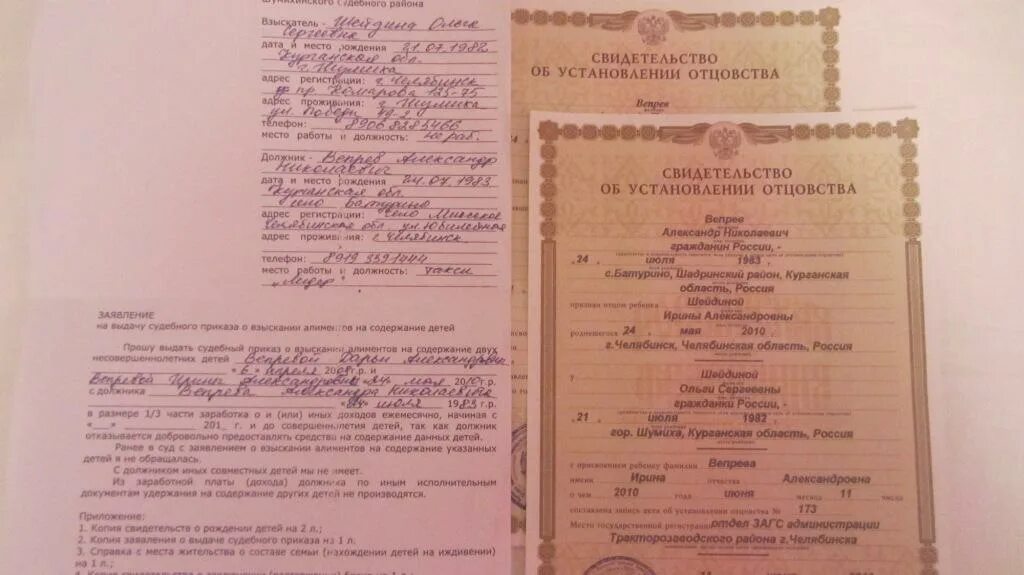 Шумихинского судебного района
Взыскатель - Шейдина Ольга
Сергеевна
дата и место рождения 21.07.1982
Курганская обл.
г. Шумиха
адрес регистрации: г. Челябинск
пр. Комарова 125-75
адрес проживания: г. Шумиха
ул. Победы 19-2
телефон: 89068285466
место работы и должность: не раб.
Должник - Вепрев Александр
Николаевич
дата и место рождения 24.07.1983
Курганская обл.
село Батурино
адрес регистрации: село Миасское
Челябинская обл. ул Юбилейная
адрес проживания: г. Челябинск
телефон: 8919 3391444
место работы и должность: такси
"Лидер"
ЗАЯВЛЕНИЕ
на выдачу судебного приказа о взыскании алиментов на содержание детей
Прошу выдать судебный приказ о взыскании алиментов на содержание двух
несовершеннолетних детей Вепревой Дарьи Александровны
"6" апреля 2008г.р и
Вепревой Ирины Александровны "24" мая 2010г.р.
с должника Вепрева Александра Николаевича
"24" июля 1983 г.р.
в размере 1/3 части заработка о и (или) иных доходов ежемесячно, начиная с
«___» ________ 201_ г. и до совершеннолетия детей, так как должник
отказывается добровольно предоставлять средства на содержание данных детей.
Ранее в суд с заявлением о взыскании алиментов на содержание указанных
детей я не обращалась.
С должником иных совместных детей мы не имеет.
Из заработной платы (дохода) должника по иным исполнительным
документам удержания на содержание других детей не производятся.
Приложение:
1. Копия свидетельств о рождении детей на 2 л.;
2. Копия заявления о выдаче судебного приказа на 1 л.;
3. Справка с места жительства о составе семьи (нахождении детей на иждивении)
на 1 л.;
СВИДЕТЕЛЬСТВО
ОБ УСТАНОВЛЕНИИ ОТЦОВСТВА
Вепрев
СВИДЕТЕЛЬСТВО
ОБ УСТАНОВЛЕНИИ ОТЦОВСТВА
Вепрев
Александр Николаевич
гражданин России, -
"24" июля 1983
с.Батурино, Шадринский район, Курганская
область, Россия
признан отцом ребенка Шейдиной
Ирины Александровны
родившегося 24 мая 2010
г.Челябинск, Челябинская область, Россия
у Шейдиной
Ольги Сергеевны
гражданки России, -
"21" июля 1982
гор. Шумиха, Курганская область, Россия
с присвоением ребенку фамилии Вепрева
имени Ирина отчества Александровна
о чем 2010 года июня месяца 11 числа
составлена запись акта об установлении отцовства № 173
Место государственной регистрации отдел ЗАГС администрации
Тракторозаводского района г.Челябинска